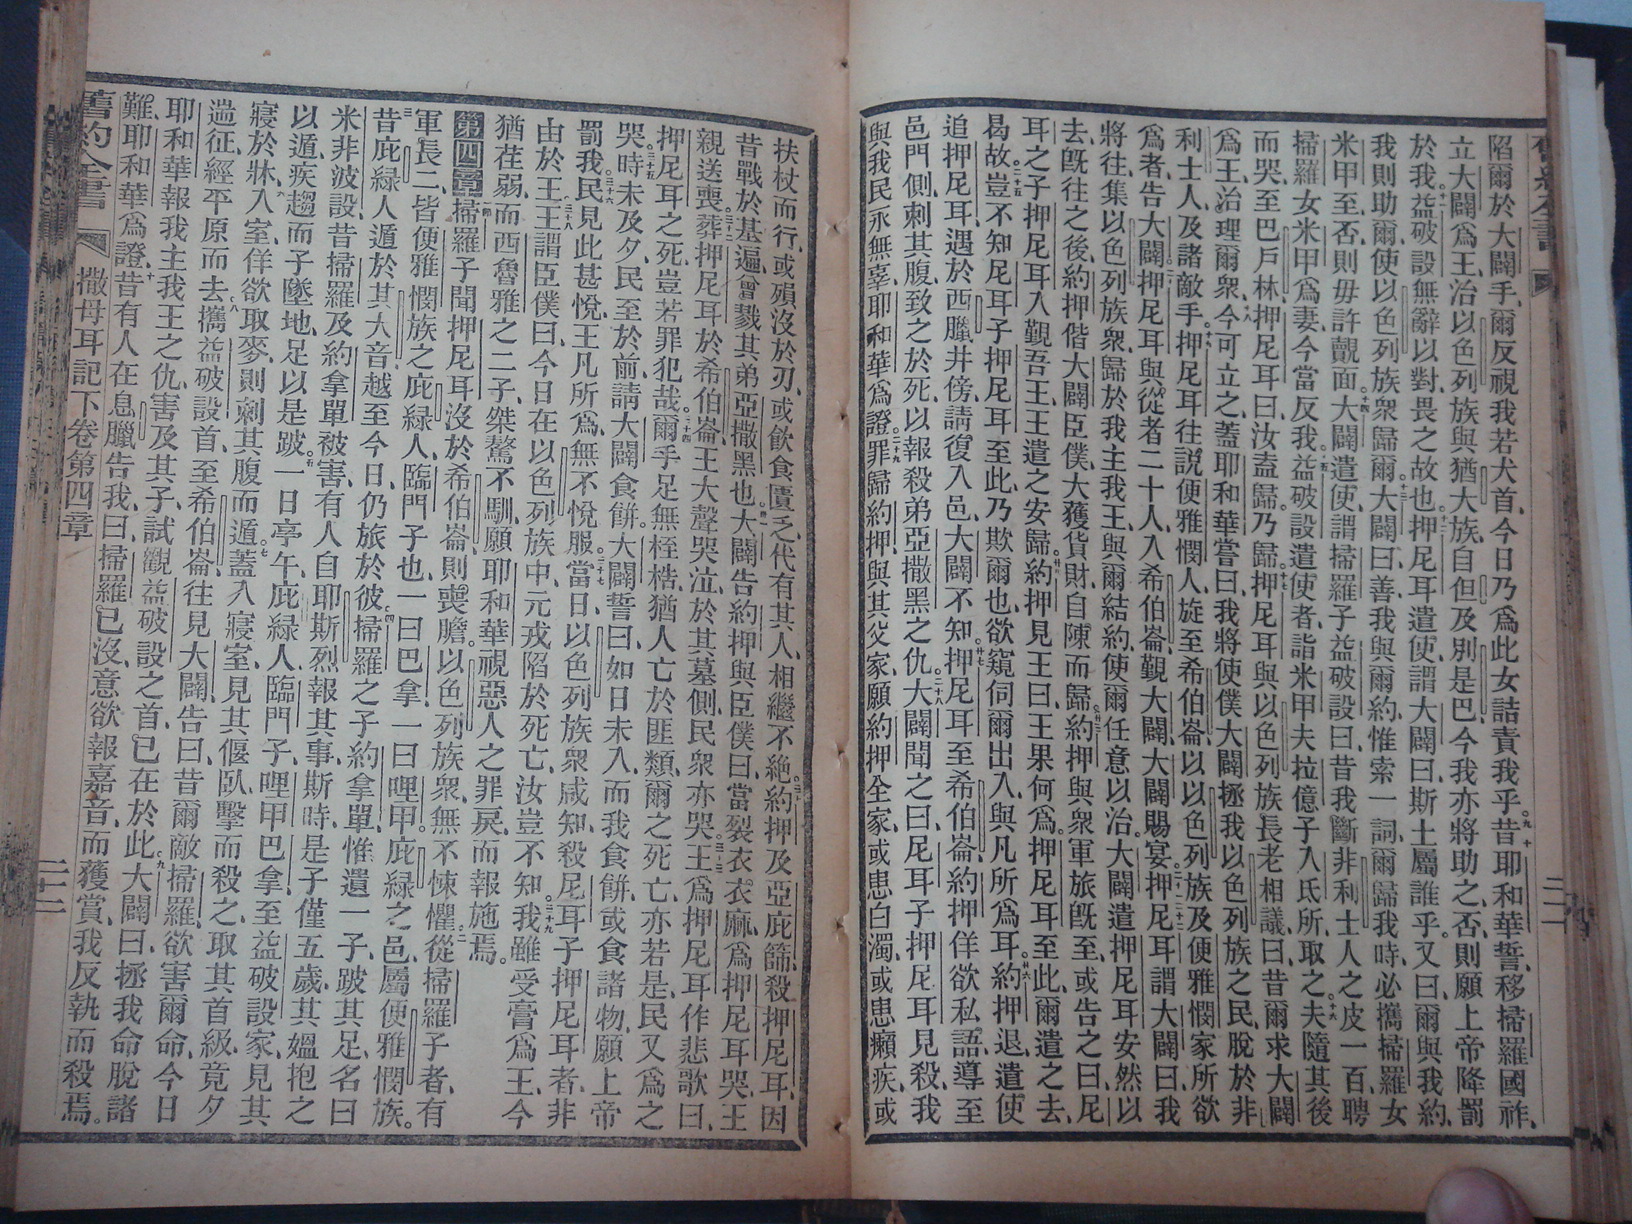 陷爾於大闢手、爾反視我若犬首、今日乃爲此女詰責我乎。九十昔耶和華誓、移掃羅國祚、
立大闢爲王、治以色列族與猶大族、自但及別是巴、今我亦將助之、否則願上帝降罰
於我。十一益破設無辭以對、畏之故也。十二押尼耳遣使、謂大闢曰、斯土屬誰乎。又曰、爾與我約、
我則助爾、使以色列族衆歸爾。十三大闢曰、善、我與爾約、惟索一詞、爾歸我時、必攜掃羅女
米甲至、否則毋許覿面。十四大闢遣使、謂掃羅子益破設曰、昔我斷非利士人之皮一百、聘
掃羅女米甲爲妻、今當反我。十五益破設遣使者、詣米甲夫拉億子人氐所、取之。十六夫隨其後
而哭、至巴戶林、押尼耳曰、汝盍歸、乃歸。十七押尼耳與以色列族長老相議曰、昔爾求大闢
爲王、治理爾衆、十八今可立之、蓋耶和華嘗曰、我將使僕大闢拯我以色列族之民、脫於非
利士人及諸敵手。十九押尼耳往說便雅憫人、旋至希伯崙、以以色列族及便雅憫家所欲
爲者、告大闢。二十押尼耳與從者二十人、入希伯崙、覲大闢、大闢賜宴。二十一押尼耳謂大闢曰、我
將往、集以色列族衆、歸於我主我王、與爾結約、使爾任意以治、大闢遣押尼耳安然以
去。二十二旣往之後、約押偕大闢臣僕、大獲貨財、自陳而歸。二十三約押與衆軍旅旣至、或告之曰、尼
耳之子押尼耳、入覲吾王、王遣之安歸。二十四約押見王曰、王果何爲、押尼耳至此、爾遣之去、
曷故。二十五豈不知尼耳子押尼耳至此、乃欺爾也、欲窺伺爾出入、與凡所爲耳。二十六約押退、遣使
追押尼耳、遇於西臘井傍、請復入邑、大闢不知。二十七押尼耳至希伯崙、約押佯欲私語、導至
邑門側、刺其腹、致之於死、以報殺弟亞撒黑之仇。二十八大闢聞之曰、尼耳子押尼耳見殺、我
與我民永無辜、耶和華爲證。二十九罪歸約押、與其父家、願約押全家、或患白濁、或患癩疾、或
扶杖而行、或殞沒於刃、或飲食匱乏、代有其人、相繼不絕。三十約押及亞庇篩殺押尼耳、因
昔戰於基遍、曾戮其弟亞撒黑也。三十一大闢告約押與臣僕曰、當裂衣、衣麻、爲押尼耳哭、王
親送喪、三十二葬押尼耳於希伯崙、王大聲哭泣於其墓側、民衆亦哭。三十三王爲押尼耳作悲歌曰、
押尼耳之死、豈若罪犯哉。三十四爾手足無桎梏、猶人亡於匪類、爾之死亡亦若是、民又爲之
哭。三十五時未及夕、民至於前、請大闢食餅、大闢誓曰、如日未入、而我食餅、或食諸物、願上帝
罰我。三十六民見此甚悅、王凡所爲、無不悅服。三十七當日以色列族衆咸知、殺尼耳子押尼耳者、非
由於王。三十八王謂臣僕曰、今日在以色列族中、元戎陷於死亡、汝豈不知。三十九我雖受膏爲王、今
猶荏弱、而西魯雅之二子、桀驁不馴、願耶和華視惡人之罪戾、而報施焉。
第四章 掃羅子聞押尼耳沒於希伯崙、則喪膽、以色列族衆、無不悚懼。二從掃羅子者、有
軍長二、皆便雅憫族之庇綠人臨門子也、一曰巴拿、一曰哩甲。庇綠之邑、屬便雅憫族。
三昔庇綠人遁於其大音、越至今日、仍旅於彼。四掃羅之子約拿單、惟遺一子、跛其足、名曰
米非波設、昔掃羅及約拿單被害、有人自耶斯烈報其事、斯時是子僅五歲、其媼抱之
以遁、疾趨而子墜地、足以是跛。五一日亭午、庇綠人臨門子、哩甲巴拿至益破設家、見其
寢於牀、六入室、佯欲取麥、則刺其腹而遁。七蓋入寢室、見其偃臥、擊而殺之、取其首級、竟夕
遄征、經平原而去、八攜益破設首、至希伯崙、往見大闢、告曰、昔爾敵掃羅、欲害爾命、今日
耶和華報我主我王之仇、害及其子、試觀益破設之首、已在於此。九大闢曰、拯我命脫諸
難、耶和華爲證、十昔有人在息臘告我、曰掃羅已沒、意欲報嘉音、而獲賞、我反執而殺焉。
舊約全書 撒母耳記下卷 第四章 二百二十二